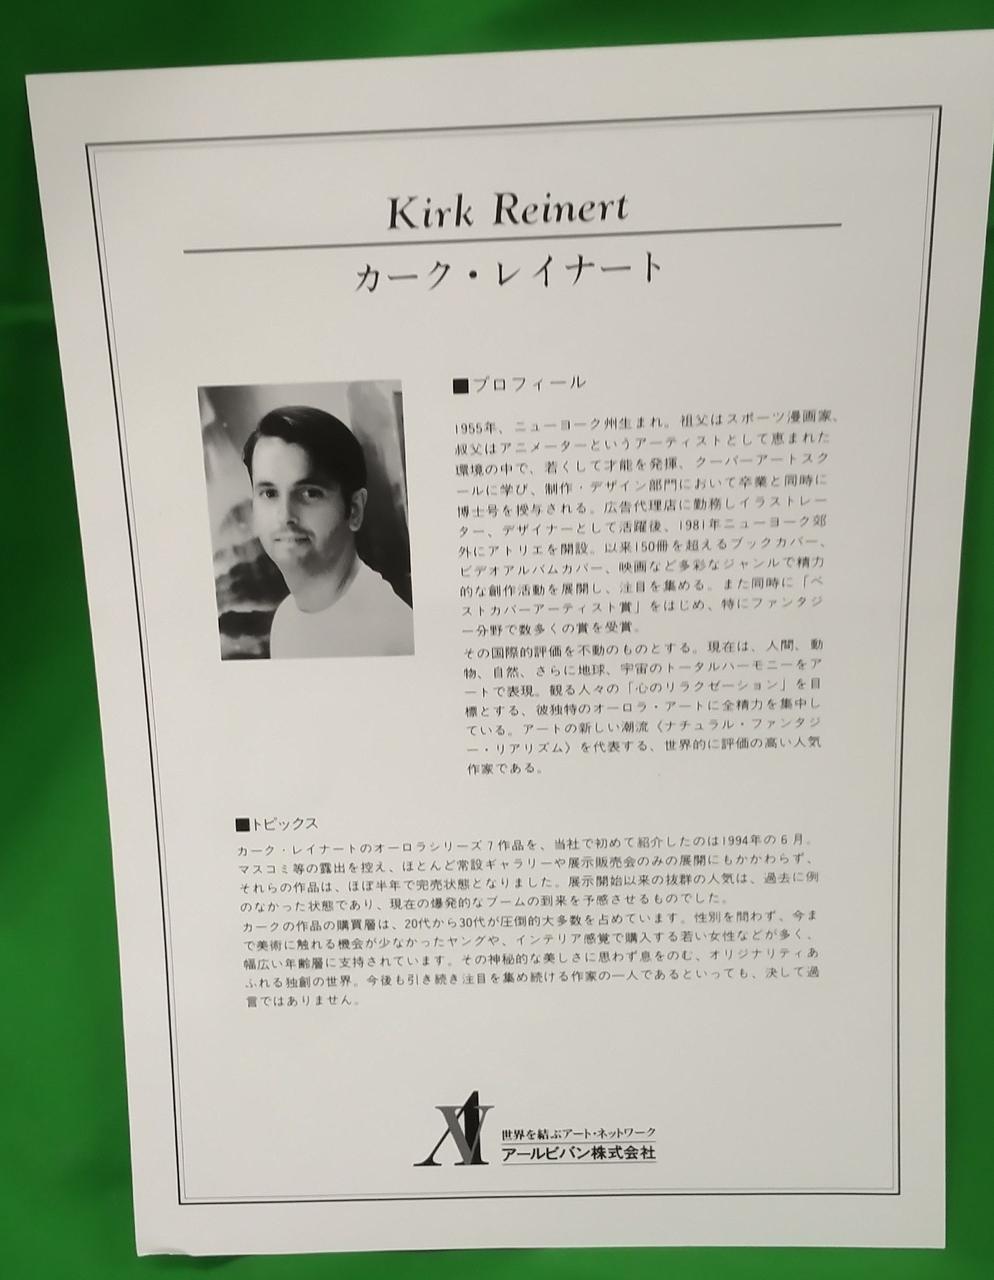 Kirk Reinert
カーク・レイナート
■プロフィール
1955年、ニューヨーク州生まれ。祖父はスポーツ漫画家、
叔父はアニメーターというアーティストとして恵まれた
環境の中で、若くして才能を発揮、クーパーアートスク
ールに学び、制作・デザイン部門において卒業と同時に
博士号を授与される。広告代理店に勤務しイラストレー
ター、デザイナーとして活躍後、1981年ニューヨーク郊
外にアトリエを開設。以来150冊を超えるブックカバー、
ビデオアルバムカバー、映画など多彩なジャンルで精力
的な創作活動を展開し、注目を集める。また同時に「ベ
ストカバーアーティスト賞」をはじめ、特にファンタジ
ー分野で数多くの賞を受賞。
その国際的評価を不動のものとする。現在は、人間、動
物、自然、さらに地球、宇宙のトータルハーモニーをア
ートで表現。観る人々の「心のリラクゼーション」を目
標とする、彼独特のオーロラ・アートに全精力を集中し
ている。アートの新しい潮流〈ナチュラル・ファンタジ
ー・リアリズム〉を代表する、世界的に評価の高い人気
作家である。
■トピックス
カーク・レイナートのオーロラシリーズ7作品を、当社で初めて紹介したのは1994年の6月。
マスコミ等の露出を控え、ほとんど常設ギャラリーや展示販売会のみの展開にもかかわらず、
それらの作品は、ほぼ半年で完売状態となりました。展示開始以来の抜群の人気は、過去に例
のなかった状態であり、現在の爆発的なブームの到来を予感させるものでした。
カークの作品の購買層は、20代から30代が圧倒的大多数を占めています。性別を問わず、今ま
で美術に触れる機会が少なかったヤングや、インテリア感覚で購入する若い女性などが多く、
幅広い年齢層に支持されています。その神秘的な美しさに思わず息をのむ、オリジナリティあ
ふれる独創の世界。今後も引き続き注目を集め続ける作家の一人であるといっても、決して過
言ではありません。
世界を結ぶアート・ネットワーク
アールビバン株式会社